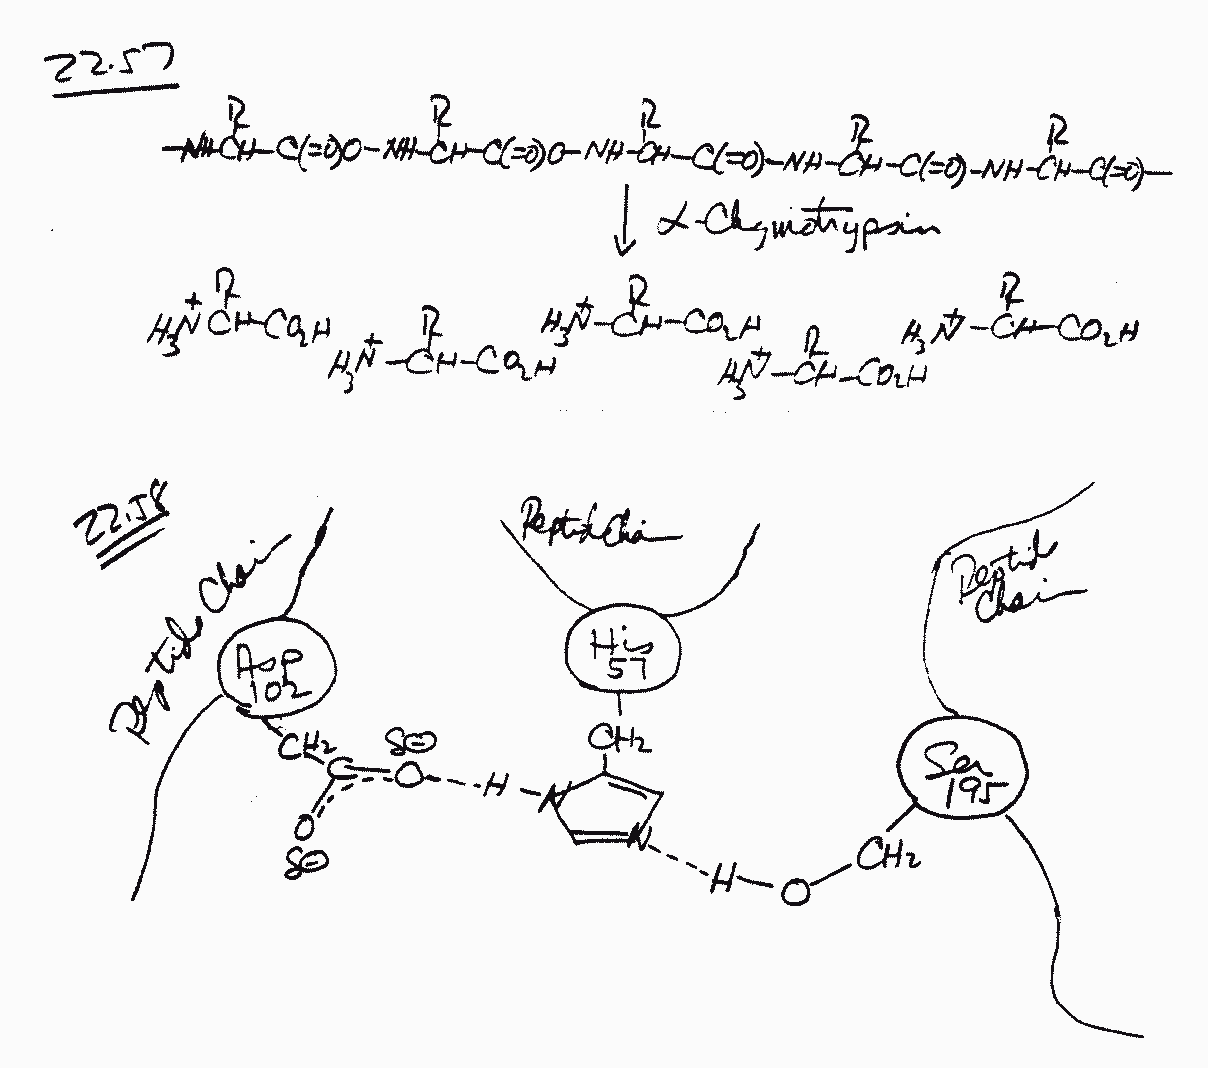 22.57
R R R R R
-NHCH-C(=O)O-NH-CH-C(=O)O-NH-CH-C(=O)-NH-CH-C(=O)-NH-CH-C(=O)-
α-Chymotrypsin
R R R R R
H3N+ CH-CO2H H3N+-CH-CO2H H3N+-CH-CO2H H3N+-CH-CO2H H3N+-CH-CO2H
22.58
Peptide Chain
Peptide Chain
Peptide
Chain
Asp
102
His
57
Ser
195
CH2
CH2
CH2
C
O
δ⊖
O
δ⊖
H
N
N
H
O